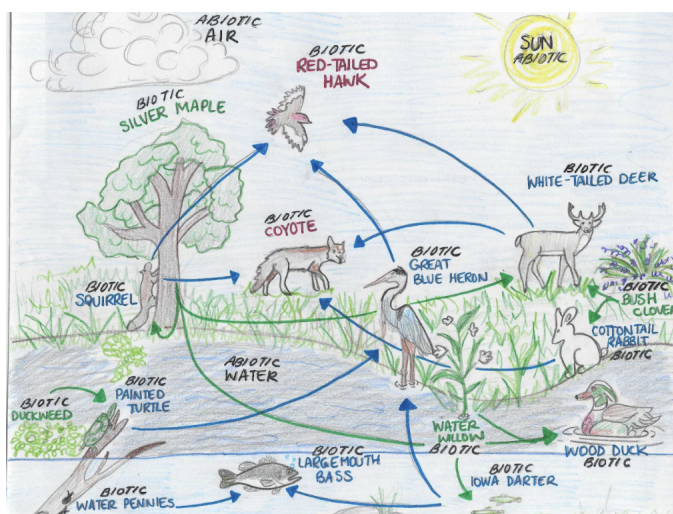 ABIOTIC
AIR
SUN
ABIOTIC
BIOTIC
RED-TAILED
HAWK
BIOTIC
SILVER MAPLE
BIOTIC
WHITE-TAILED DEER
BIOTIC
COYOTE
BIOTIC
GREAT
BLUE HERON
BIOTIC
SQUIRREL
BIOTIC
BUSH
CLOVER
COTTONTAIL
RABBIT
BIOTIC
ABIOTIC
WATER
BIOTIC
PAINTED
TURTLE
BIOTIC
DUCKWEED
WATER
WILLOW
BIOTIC
WOOD DUCK
BIOTIC
BIOTIC
LARGEMOUTH
BASS
BIOTIC
IOWA DARTER
BIOTIC
WATER PENNIES